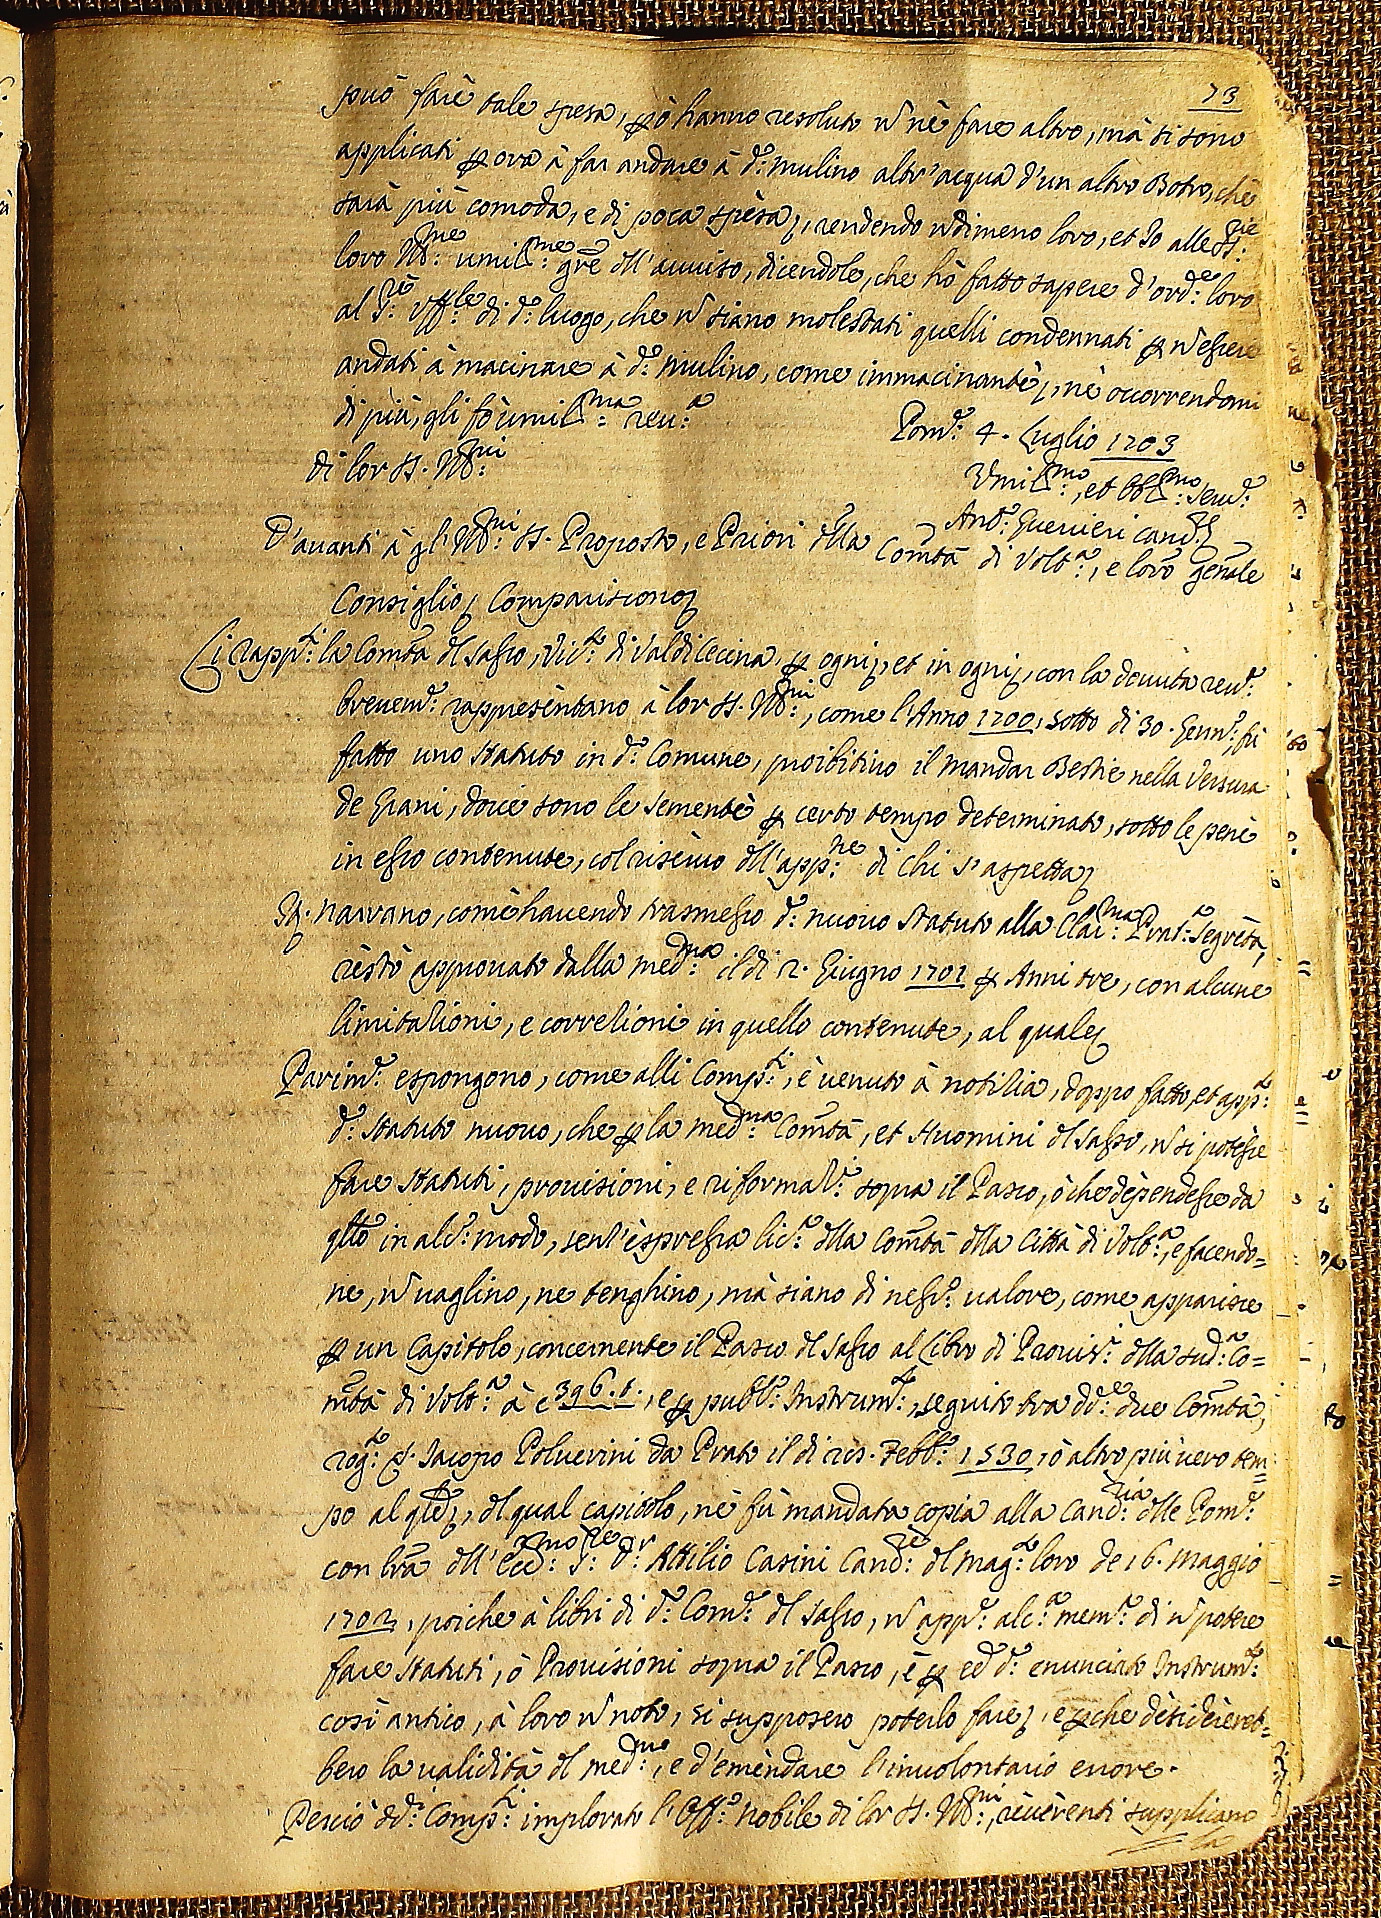 73
può fare tale spesa, ꝑò hanno resoluto ñ nè fare altro, mà si sono
applicati ꝑ ora à far andare à dᵒ: mulino altr'acqua d'un altro Botro, chè
sarà più comoda, e di poca spesa, rendendo ñdimeno loro, et Io alle SS:ʳⁱᵉ
loro Ill:ᵐᵉ umiliss:ᵐᵉ grẽ dll'auuiso, dicendole, che hò fatto sapere d'ord:ᵉ loro
al S:ʳᵉ Uff:ˡᵉ di dᵒ: luogo, che ñ siano molestati quelli condennati ꝑ ñ essere
andati à macinare à dᵒ: mulino, come immacinante, nè occorrendomi
di più, gli fò umiliss:ᵐᵃ reu:ᵃ
Pom:ᵉ 4. Luglio 1703
di lor SS. Ill:ᵐⁱ
Umiliss:ᵐᵒ, et Obbl:ᵐᵒ Seru:ᵉ
Ant:ᵒ Guerrieri Canc:ᵉ
D'auanti à gl'Ill:ᵐⁱ SS. Proposto, e Priori dlla Com̃tà di Volt:ᵃ, e loro gen̄ale
Consiglio Compariscono
Li rapp:ᵗⁱ la Com̃tà dl Sasso, Vic:ᵗᵒ di Valdicecina, ꝑ ogni, et in ogni, con la douuta reu:ᵃ
breuem:ᵉ rappresentano à lor SS. Ill:ᵐⁱ, come l'Anno 1700, sotto di 30. Genn:ᵒ, fù
fatto uno Statuto in dᵒ: Comune, proibitiuo il mandar Bestie nella Versura
de Grani, doue sono le Semente ꝑ certo tempo determinato, sotto le pene
in esso contenute, col riseruo dll'app:ⁿᵉ di chi s'aspetta
It. Narrano, come hauendo trasmesso dᵒ: nuouo Statuto alla Clar:ᵐᵃ Prat:ᵃ Segreta,
restò approuato dalla med:ᵐᵃ il dì 2. Giugno 1701 ꝑ Anni tre, con alcune
limitazioni, e correzioni in quello contenute, al quale
Parim:ᵉ espongono, come alli Comp:ᵗⁱ, è uenuto à notizia, doppo fatto, et app:ᵗᵒ
dᵒ: Statuto nuouo, che ꝑ la med:ᵐᵃ Com̃tà, et Huomini dl Sasso, ñ si potesse
fare Statuti, prouisioni, e riformaz:ⁱ sopra il Pasco, ò che dependesse da
qllo in alc:ᵒ modo, senz'espressa lic:ᵃ dlla Com̃tà dlla Città di Volt:ᵃ, e facendo=
ne, ñ uaglino, ne tenghino, mà siano di ness:ᵒ ualore, come apparisce
ꝑ un Capitolo, concernente il Pasco dl Sasso al Libro di Prouis:ⁱ dlla sud:ᵃ Co=
m̃tà di Volt:ᵃ à c 396.t., e ꝑ pubb:ᵒ Instrum:ᵗᵒ, seguito tra dd:ᵉ due Com̃tà,
rog:ᵒ S. Iacopo Poluerini da Prato il dì Febb:ᵒ 1530, ò altro più uero tem=
po al qle, dl qual capitolo, nè fù mandata copia alla Canc:ʳⁱᵃ dlle Pom:ᵉ
con lr̃a dll'Ecc:ᵐᵒ S:ʳᵉ D:ʳ Attilio Casini Canc:ʳᵉ dl Mag:ᵗᵒ loro de 16. Maggio
1702, poiche à libri di dᵒ: Com:ᵉ dl Sasso, ñ app:ᵉ alc:ᵃ mem:ᵃ di ñ potere
fare Statuti, ò Prouisioni sopra il Pasco, e ꝑ ed dᵒ: enunciato Instrum:ᵗᵒ
così antico, à loro ñ noto, si supposero poterlo fare, e ꝑche desidereret=
bero la ualidità dl med:ᵐᵒ, e d'emendare l'inuolontario errore.
Perciò dd:ⁱ Comp:ᵗⁱ implorato l'Off:ᵒ nobile di lor SS. Ill:ᵐⁱ, reuerenti supplicano
la